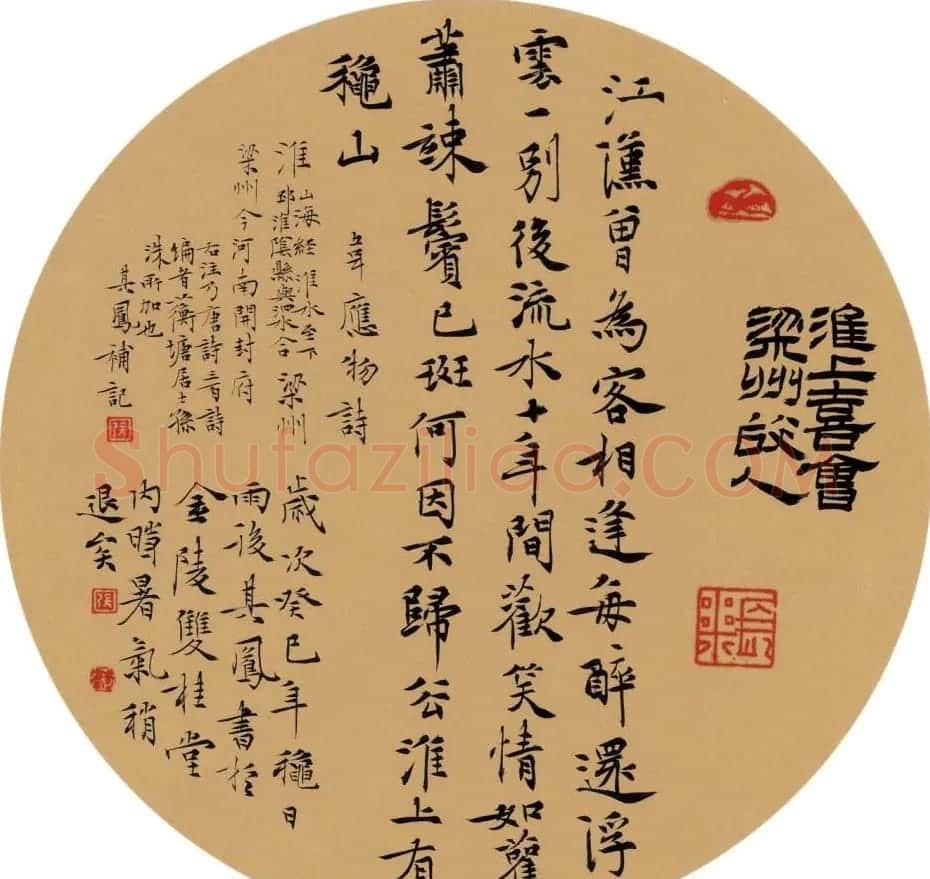 淮上喜會
梁州故人
江漢曾為客相逢每醉還浮
雲一別後流水十年間歡笑情如舊
蕭疎鬢已斑何因不歸去淮上有
龝山
韋應物詩
淮 山海經淮水至下
邳淮陰縣與泗合 梁州
梁州今河南開封府
右注乃唐詩三百詩
編者蘅塘居士孫
洙所加也
其鳳補記
歲次癸巳年龝日
雨後其鳳書於
金陵雙桂堂
內時暑氣稍
退矣
張
張